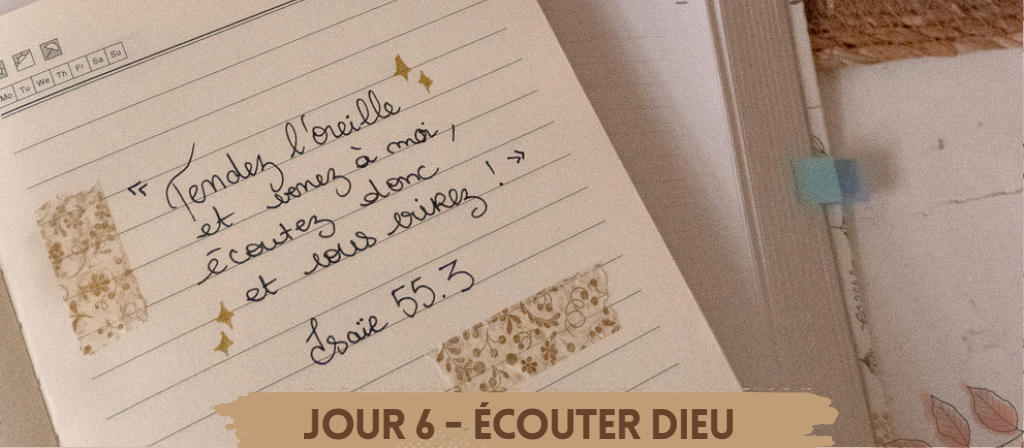 Mo Tu We Th Fr Sa Su
« Tendez l'oreille
et venez à moi,
écoutez donc
et vous vivrez ! »
Isaïe 55.3
JOUR 6 - ÉCOUTER DIEU